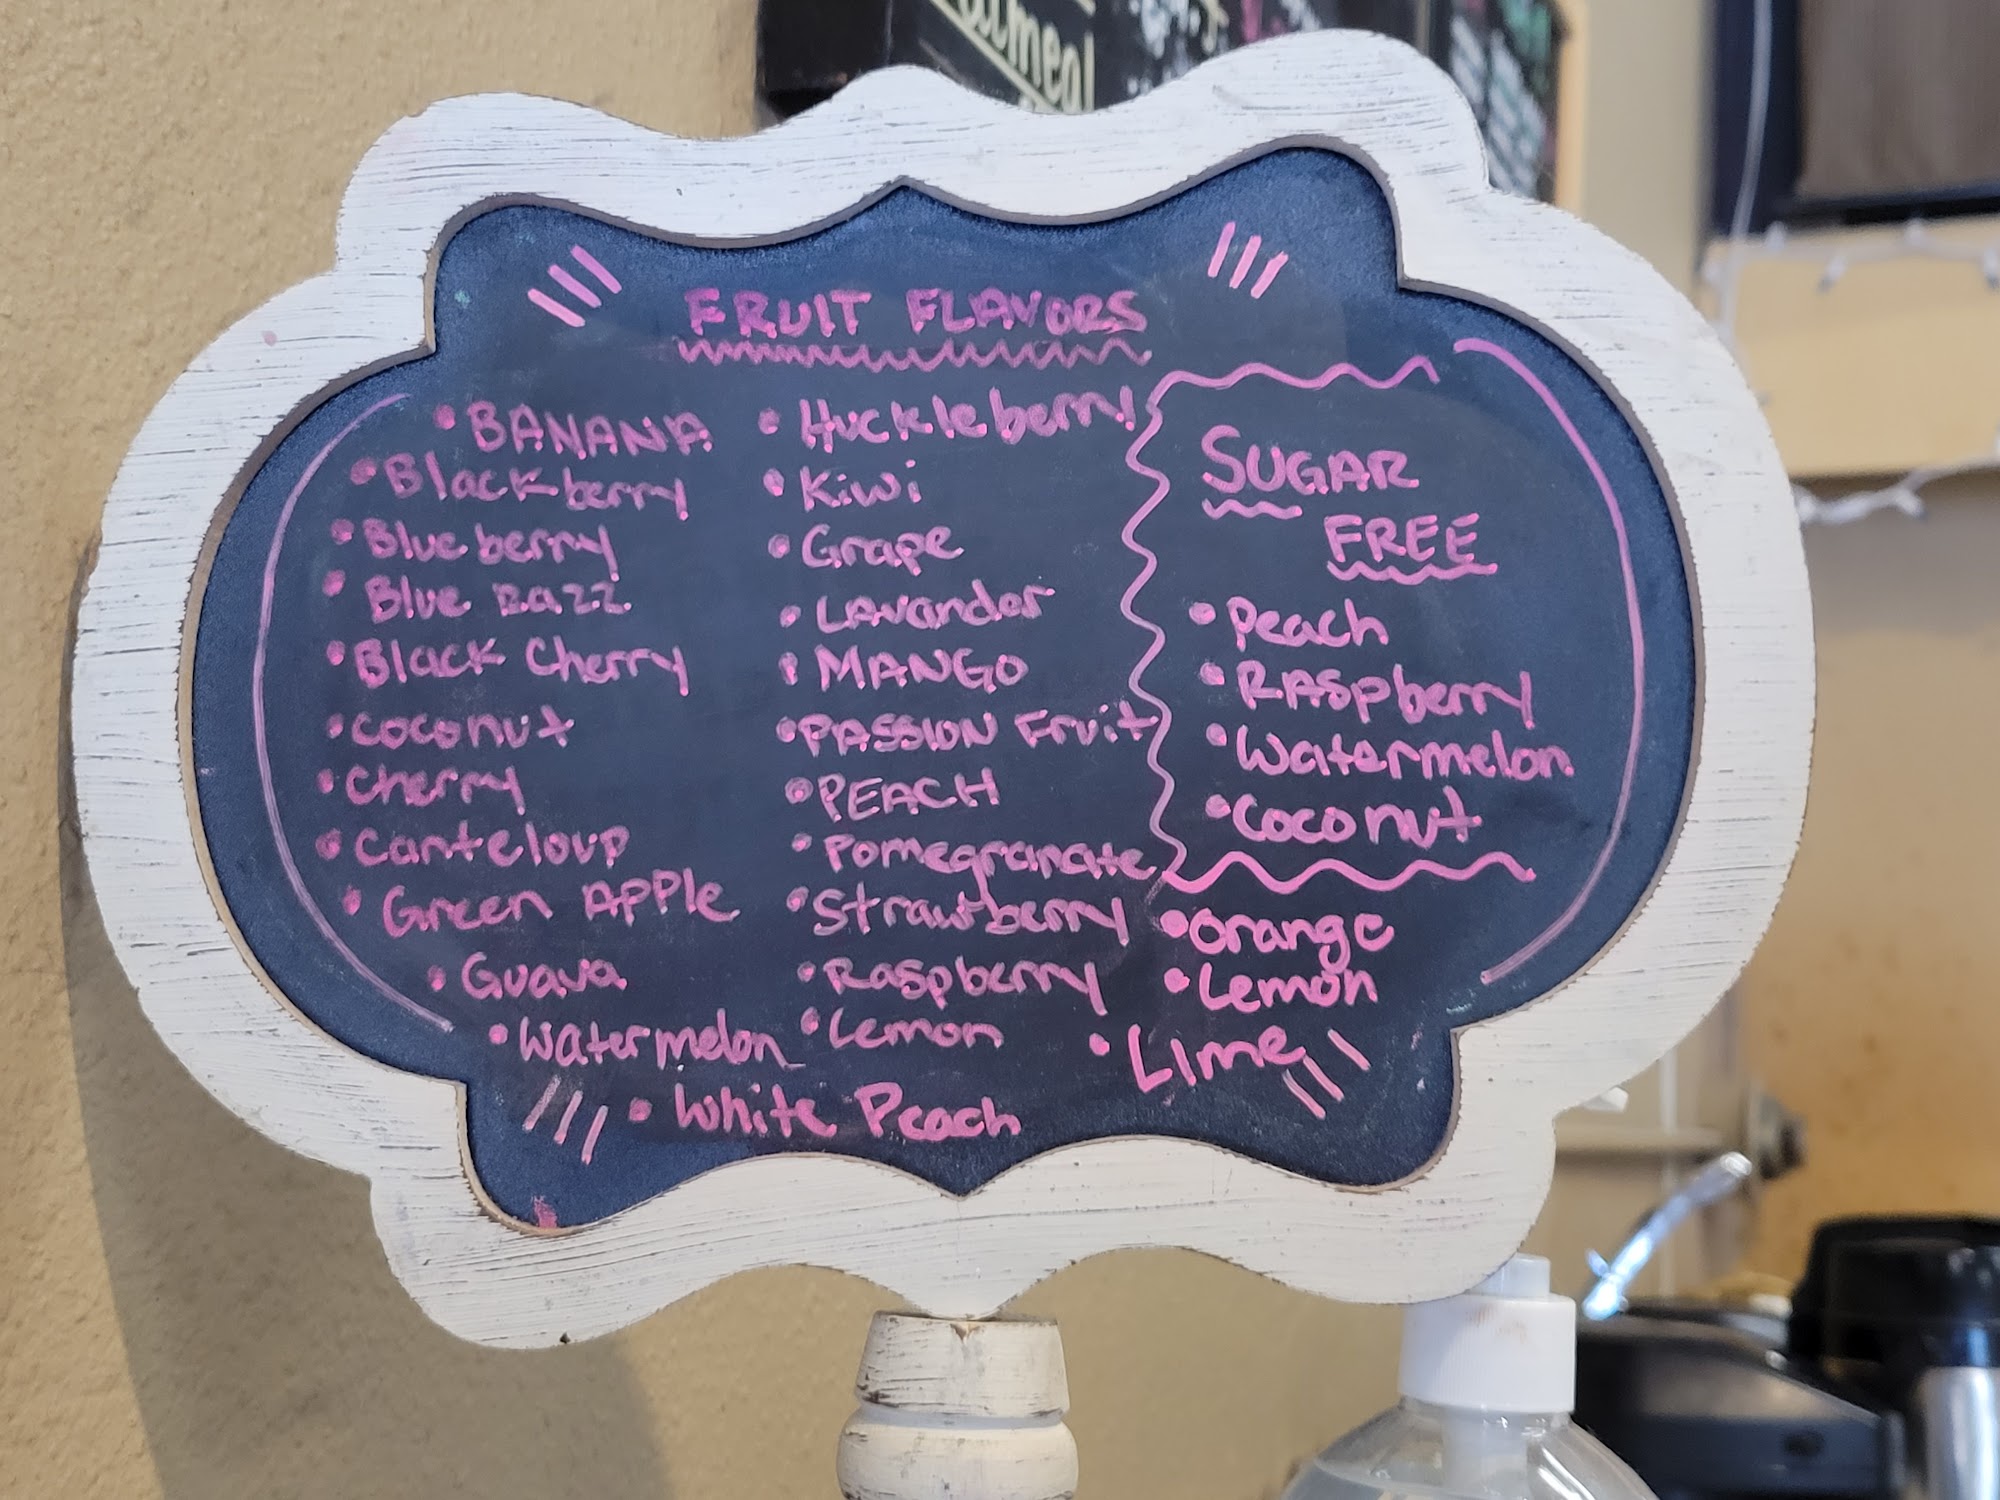 FRUIT FLAVORS
• BANANA
• Blackberry
• Blueberry
• Blue Razz
• Black Cherry
• Coconut
• Cherry
• Canteloup
• Green Apple
• Guava
• Watermelon
• Huckleberry
• Kiwi
• Grape
• Lavander
• MANGO
• PASSION Fruit
• PEACH
• Pomegranate
• Strawberry
• Raspberry
• Lemon
• White Peach
SUGAR
FREE
• Peach
• Raspberry
• Watermelon
• Coconut
• Orange
• Lemon
• Lime